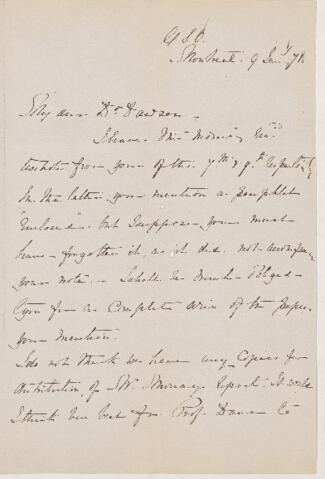 G. S. O.
Montreal 9 Jany 78
My dear Dr Dawson –
I have this morning rec'd
two notes from you of the 7th & 9th respectively
In the latter you mention a pamphlet
"enclosed" but I suppose you must
have forgotten it, as it did not accompany
your note. – I shall be much obliged
to you for a complete series of the papers
you mention.
I do not think we have any copies for
distribution of Mr. Murray's Report. It would
I think be best for Prof. Dana to